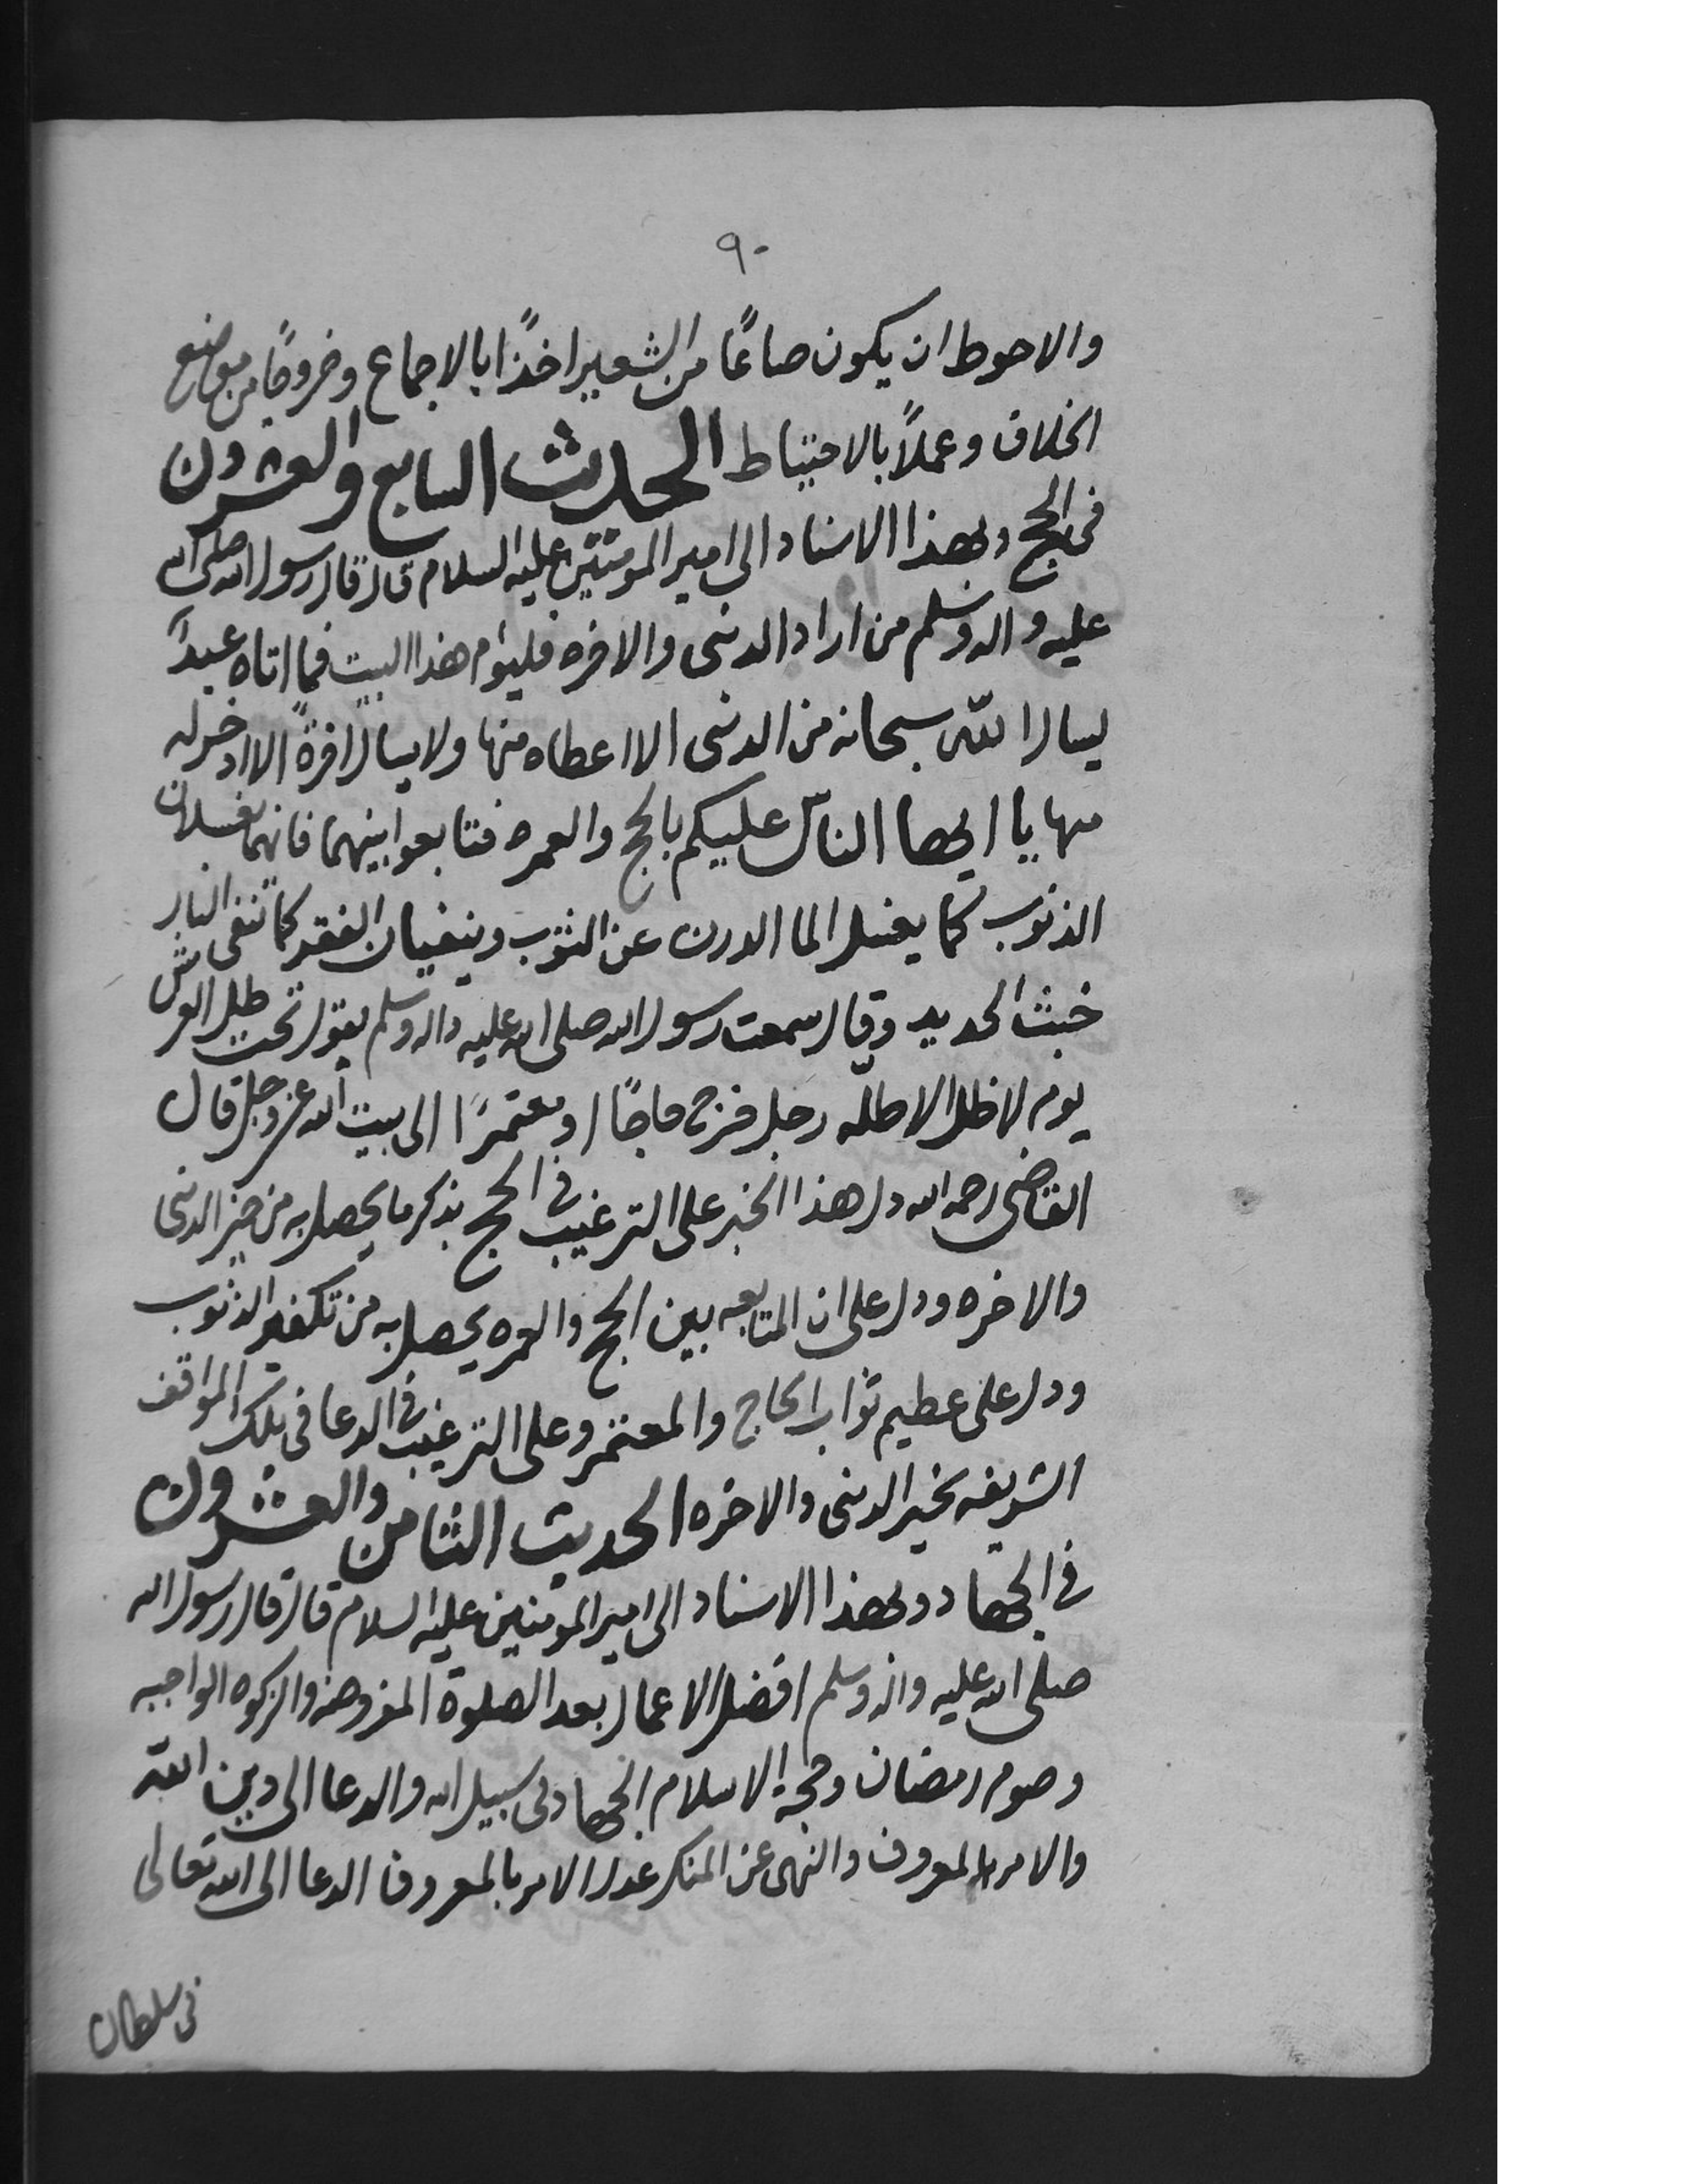 ٩٠
والاحوط ان يكون صاعًا من الشعير اخذًا بالاجماع وخروجًا من موضع
الخلاف وعملًا بالاحتياط الحديث السابع والعشرون
في الحج وبهذا الاسناد الى امير المومنين عليه السلام قال قال رسول الله صلى الله
عليه واله وسلم من اراد الدنى والاخره فليؤم هذا البيت فما اتاه عبدً
يسال الله سبحانه من الدنى الا اعطاه منها ولا يسال اخرةً الا ادخر له
منها يا ايها الناس عليكم بالحج والعمره فتابعوا بينهما فانهما يغسلان
الذنوب كما يغسل الما الدرن عن الثوب وينفيان الفقر كما تنفى النار
خبث الحديد وقال سمعت رسول الله صلى الله عليه واله وسلم يقول تحت ظل العرش
يوم لا ظل الا ظله رجل خرج حاجًا او معتمرًا الى بيت الله عز وجل قال
القاضى رحمه الله دل هذا الخبر على الترغيب في الحج بذكر ما يحصل به من خير الدنى
والاخره ودل على ان المتابعه بين الحج والعمره يحصل به من تكفير الذنوب
ودل على عظيم ثواب الحاج والمعتمر وعلى الترغيب في الدعا في تلك المواقف
الشريفه بخير الدنى والاخره الحديث الثامن والعشرون
في الجهاد وبهذا الاسناد الى امير المومنين عليه السلام قال قال رسول الله
صلى الله عليه واله وسلم افضل الاعمال بعد الصلوة المفروضه والزكوه الواجبه
وصوم رمضان وحجة الاسلام الجهاد في سبيل الله والدعا الى دين الله
والامر بالمعروف والنهى عن المنكر عدل الامر بالمعروف الدعا الى الله تعالى
في سلطان